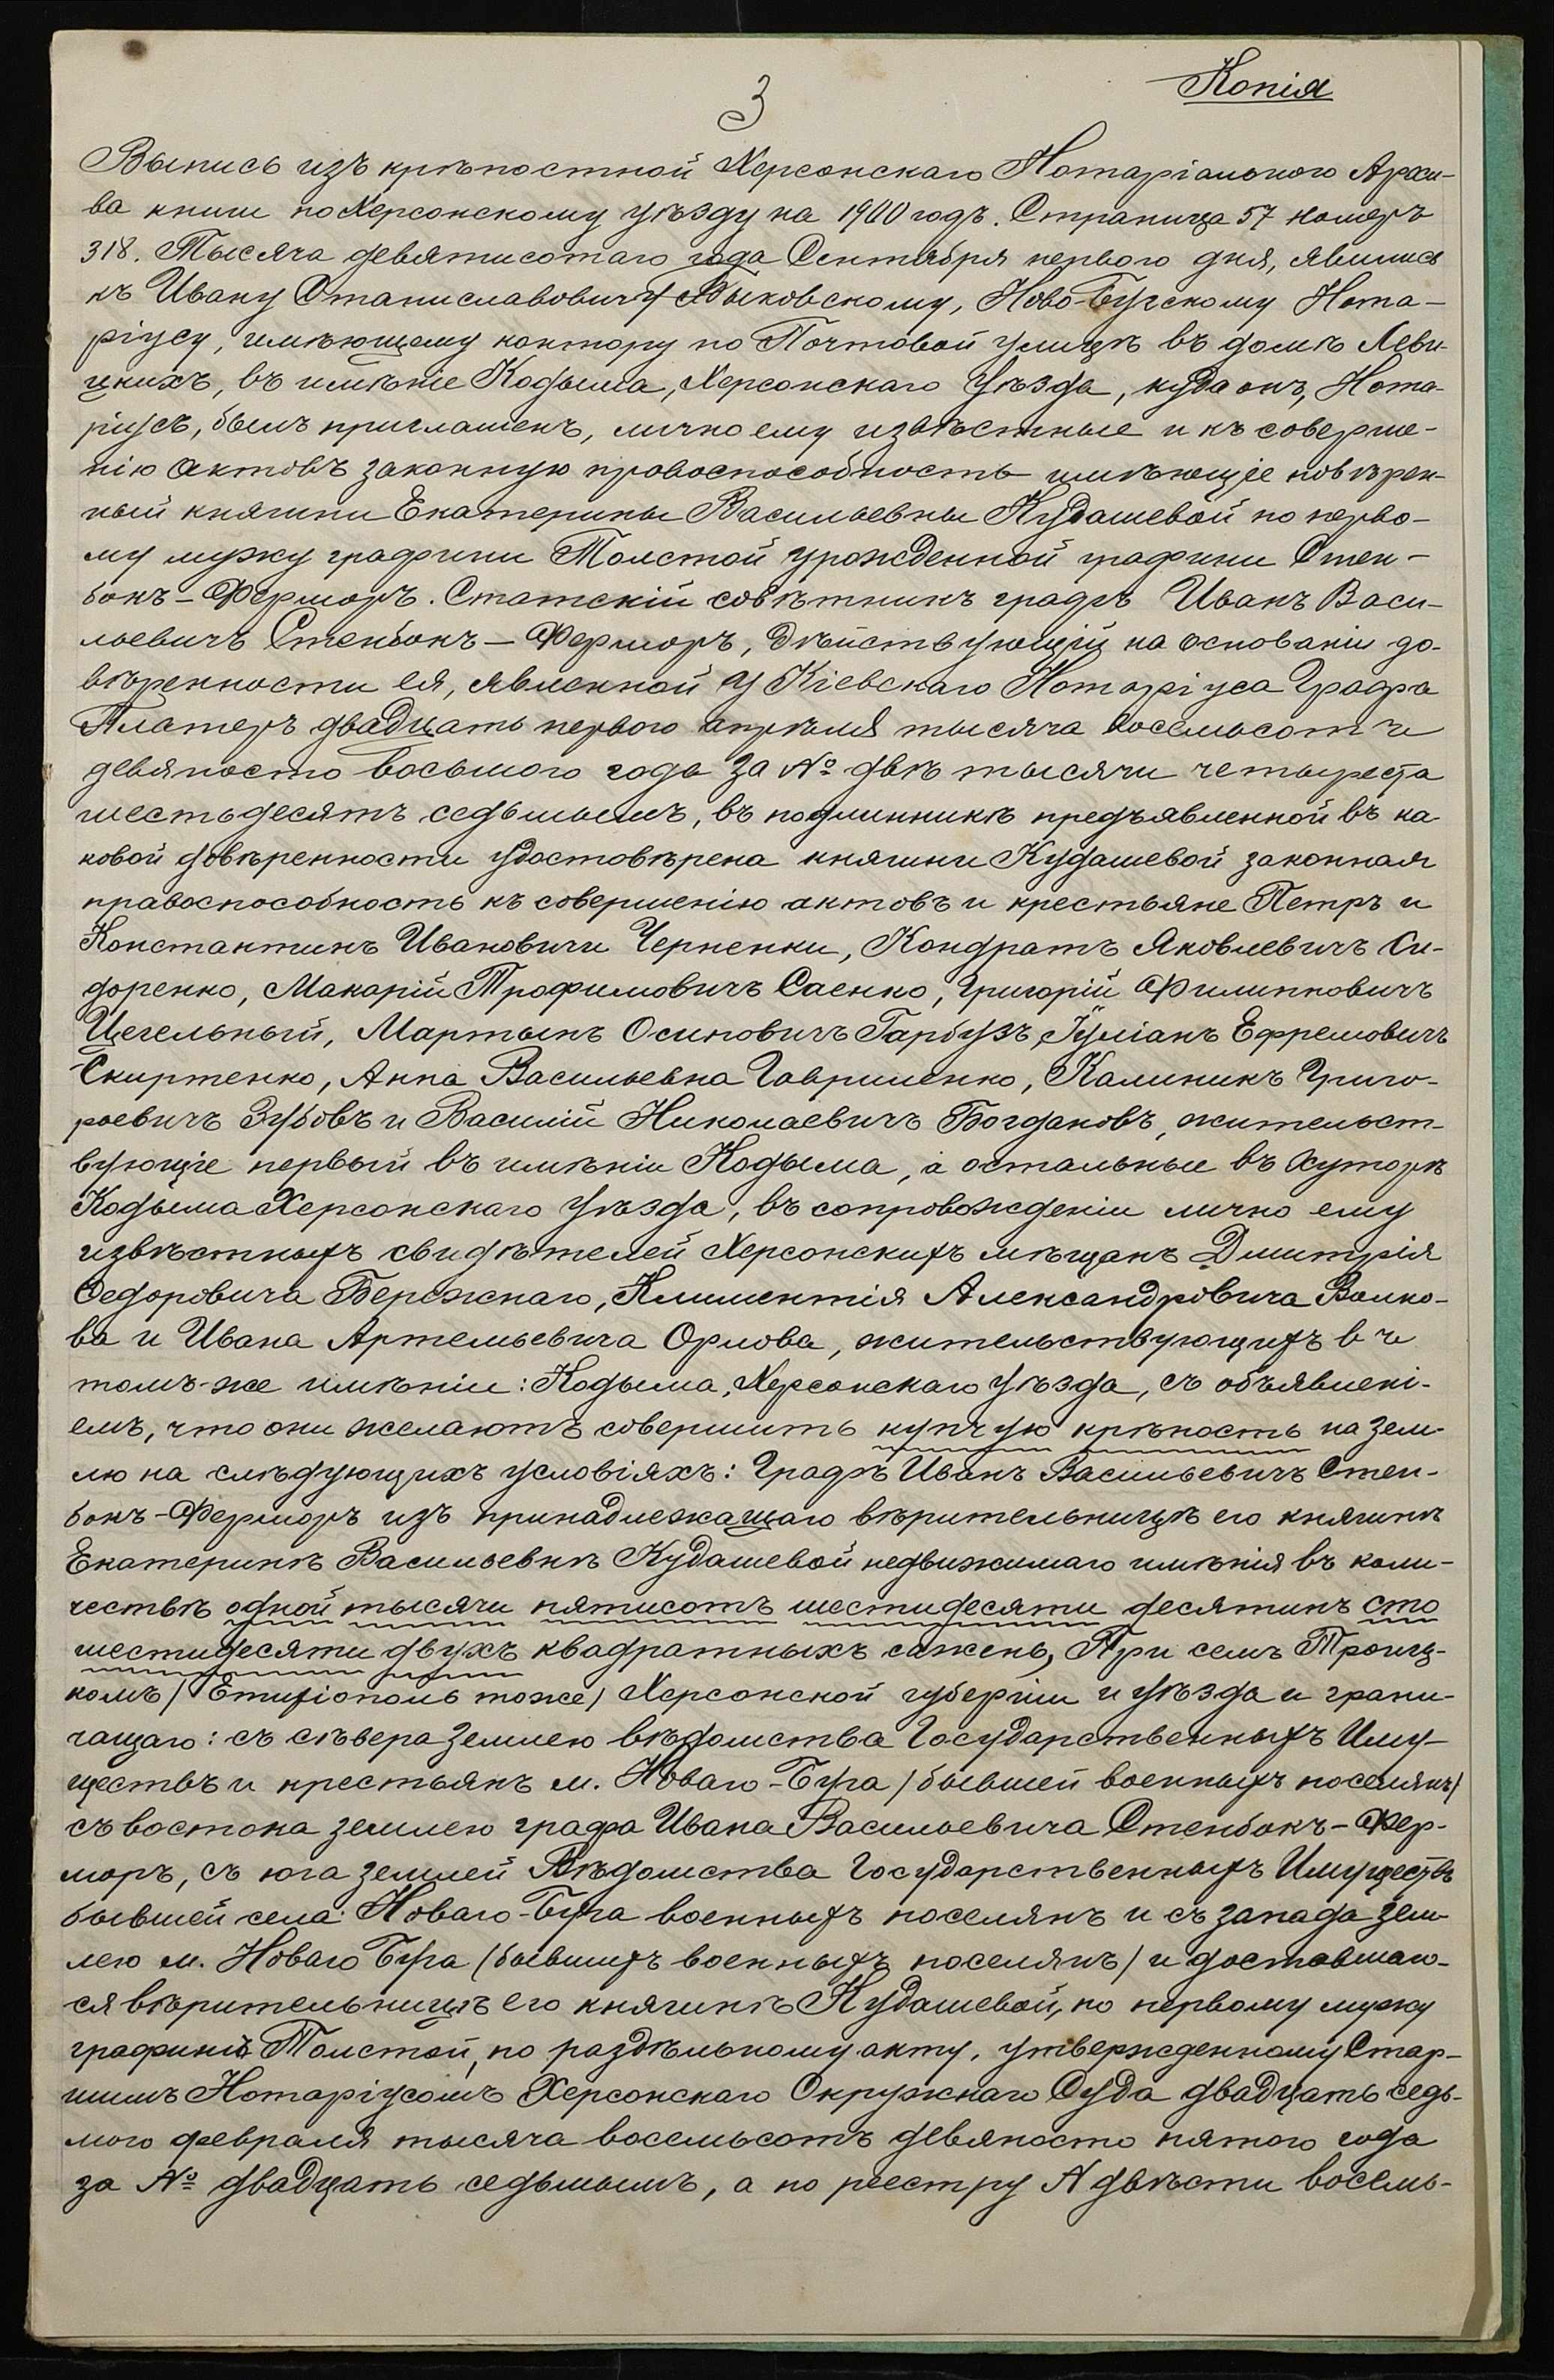 Копія
3
Выпись изъ крѣпостной Херсонскаго Нотаріальнаго Архи-
ва книги по Херсонскому уѣзду на 1900 годъ. Страница 57 номеръ
318. Тысяча девятисотаго года Сентября перваго дня, явились
къ Ивану Станиславовичу Быковскому, Ново-Бугскому Нота-
ріусу, имѣющему контору по Почтовой улицѣ въ домѣ Леви-
цкихъ, въ имѣніе Кодыма, Херсонскаго Уѣзда, куда онъ, Нота-
ріусъ, былъ приглашенъ, лично ему извѣстные и къ соверше-
нію актовъ законную провоспособность имѣющіе повѣрен-
ный княгини Екатерины Васильевны Кудашевой по перво-
му мужу графини Толстой урожденной графини Стен-
бокъ-Ферморъ. Статскій совѣтникъ графъ Иванъ Васи-
льевичъ Стенбокъ-Ферморъ, дѣйствующій на основаніи до-
вѣренности ея, явленной у Кіевскаго Нотаріуса Графа
Платеръ двадцать перваго апрѣля тысяча восемьсотъ
девяносто восьмого года за № двѣ тысячи четыреста
шестьдесятъ седьмымъ, въ подлинникѣ предъявленной въ ка
ковой довѣренности удостовѣрена княгини Кудашевой законная
правоспособность къ совершенію актовъ и крестьяне Петръ и
Константинъ Ивановичи Черненки, Кондратъ Яковлевичъ Си-
доренко, Макарій Трофимовичъ Саенко, Григорій Филипповичъ
Цегельный, Мартынъ Осиповичъ Гарбузъ, Іуліанъ Ефремовичъ
Скиртенко, Анна Васильевна Гавриленко, Калиникъ Григо-
рьевичъ Зубовъ и Василій Николаевичъ Богдановъ, жительст-
вующіе первый въ имѣніи Кодыма, а остальные въ хуторѣ
Кодыма Херсонскаго уѣзда, въ сопровожденіи лично ему
извѣстныхъ свидѣтелей Херсонскихъ мѣщанъ Дмитрія
Федоровича Бережнаго, Климентія Александровича Волко-
ва и Ивана Артемьевича Орлова, жительствующихъ въ
томъ-же имѣніи: Кодыма, Херсонскаго уѣзда, съ объявлені-
емъ, что они желаютъ совершить купчую крѣпость на зем-
лю на слѣдующихъ условіяхъ: Графъ Иванъ Васильевичъ Стен-
бокъ-Ферморъ изъ принадлежащаго вѣрительницѣ его княгинѣ
Екатеринѣ Васильевнѣ Кудашевой недвижимаго имѣнія въ коли-
чествѣ одной тысячи пятисотъ шестидесяти десятинъ сто
шестидесяти двухъ квадратныхъ сажень, При селѣ Троиц-
комъ / Етифіополь тоже / Херсонской губерніи и уѣзда и грани-
чащаго: съ сѣвера землею вѣдомства Государственныхъ Иму-
ществъ и крестьянъ м. Новаго-Буга / бывшей военныхъ поселянъ /
съ востока землею графа Ивана Васильевича Стенбокъ-Фер-
моръ, съ юга землей Вѣдомства Государственныхъ Имуществъ
бывшей села Новаго-Буга военныхъ поселянъ и съ запада зем-
лею м. Новаго Буга / бывшихъ военныхъ поселянъ / и доставшаго-
ся вѣрительницѣ его княгинѣ Кудашевой, по первому мужу
графинѣ Толстой, по раздѣльному акту, утвержденному Стар-
шимъ Нотаріусомъ Херсонскаго Окружнаго Суда двадцать седь-
мого февраля тысяча восемьсотъ девяносто пятого года
за № двадцать седьмымъ, а по реестру № двѣсти восемь-